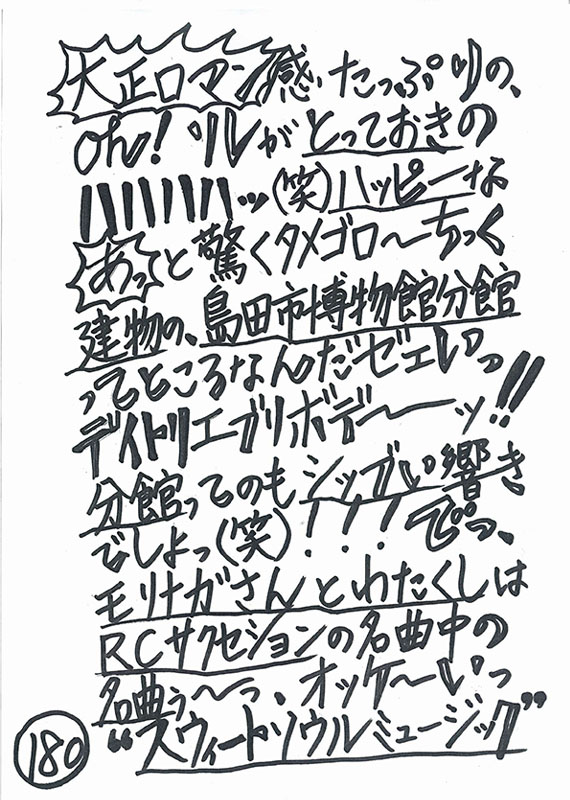 大正ロマン感、たっぷりの、
Oh!ソレがとっておきの
ハハハハハッ(笑)ハッピーな
あっと驚くタメゴロ〜ちっく
建物の、島田市博物館分館
ってところなんだぜエいっ
デイトリエブリボデ〜ッ!!
分館ってのもシッブい響き
でしよっ(笑)!!!でっ、
モリナガさんとわたくしは
RCサクセションの名曲中の
名曲ぅ〜っ、オッケ〜いっ
“スウィートソウルミュージック”
180